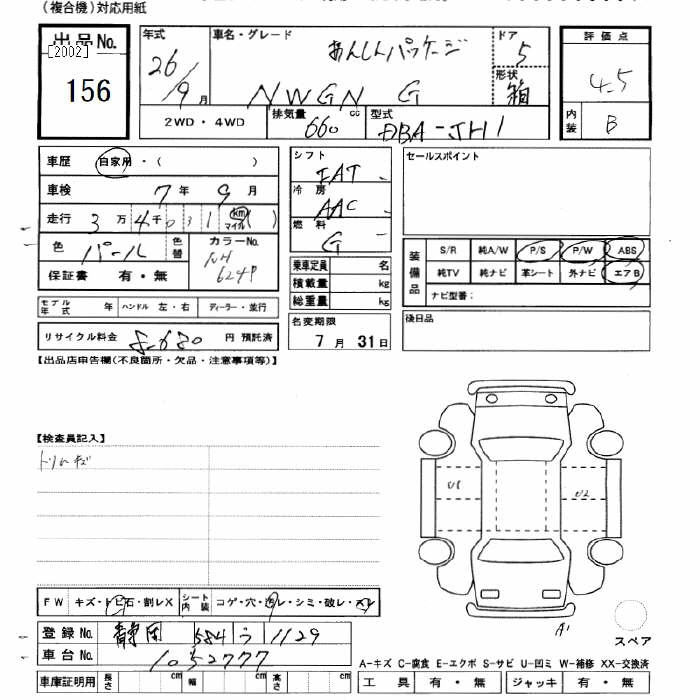 (複合機)対応用紙
出品No. [2002] 156
年式 26/9月
車名・グレード あんしんパッケージ NWGN G
ドア 5
形状 箱
評価点 4.5
内装 B
2WD・4WD
排気量 660 cc
型式 DBA-JH1
車歴 自家用・( )
車検 7年 9月
走行 3万 4千 0 3 1 km マイル ( )
色 パール 色替
カラーNo. NH 624P
保証書 有・無
シフト FAT
冷房 AAC
燃料 G
乗車定員 名
積載量 kg
総重量 kg
セールスポイント
装備品 S/R 純A/W P/S P/W ABS
純TV 純ナビ 革シート 外ナビ エアB
ナビ型番:
モデル年式 年 ハンドル 左・右 ディーラー・並行
リサイクル料金 8,680 円 預託済
名変期限 7月 31日
後日品
【出品店申告欄(不良箇所・欠品・注意事項等)】
【検査員記入】
U1
U2
A1
スペア
FW キズ・トビ石・割レX シート内装 コゲ・穴・スレ・シミ・破レ・
登録No. 静岡 584 う 1129
車台No. 1052777
車庫証明用 長さ cm 幅 cm 高さ cm
A-キズ C-腐食 E-エクボ S-サビ U-凹ミ W-補修 XX-交換済
工具 有・無 ジャッキ 有・無